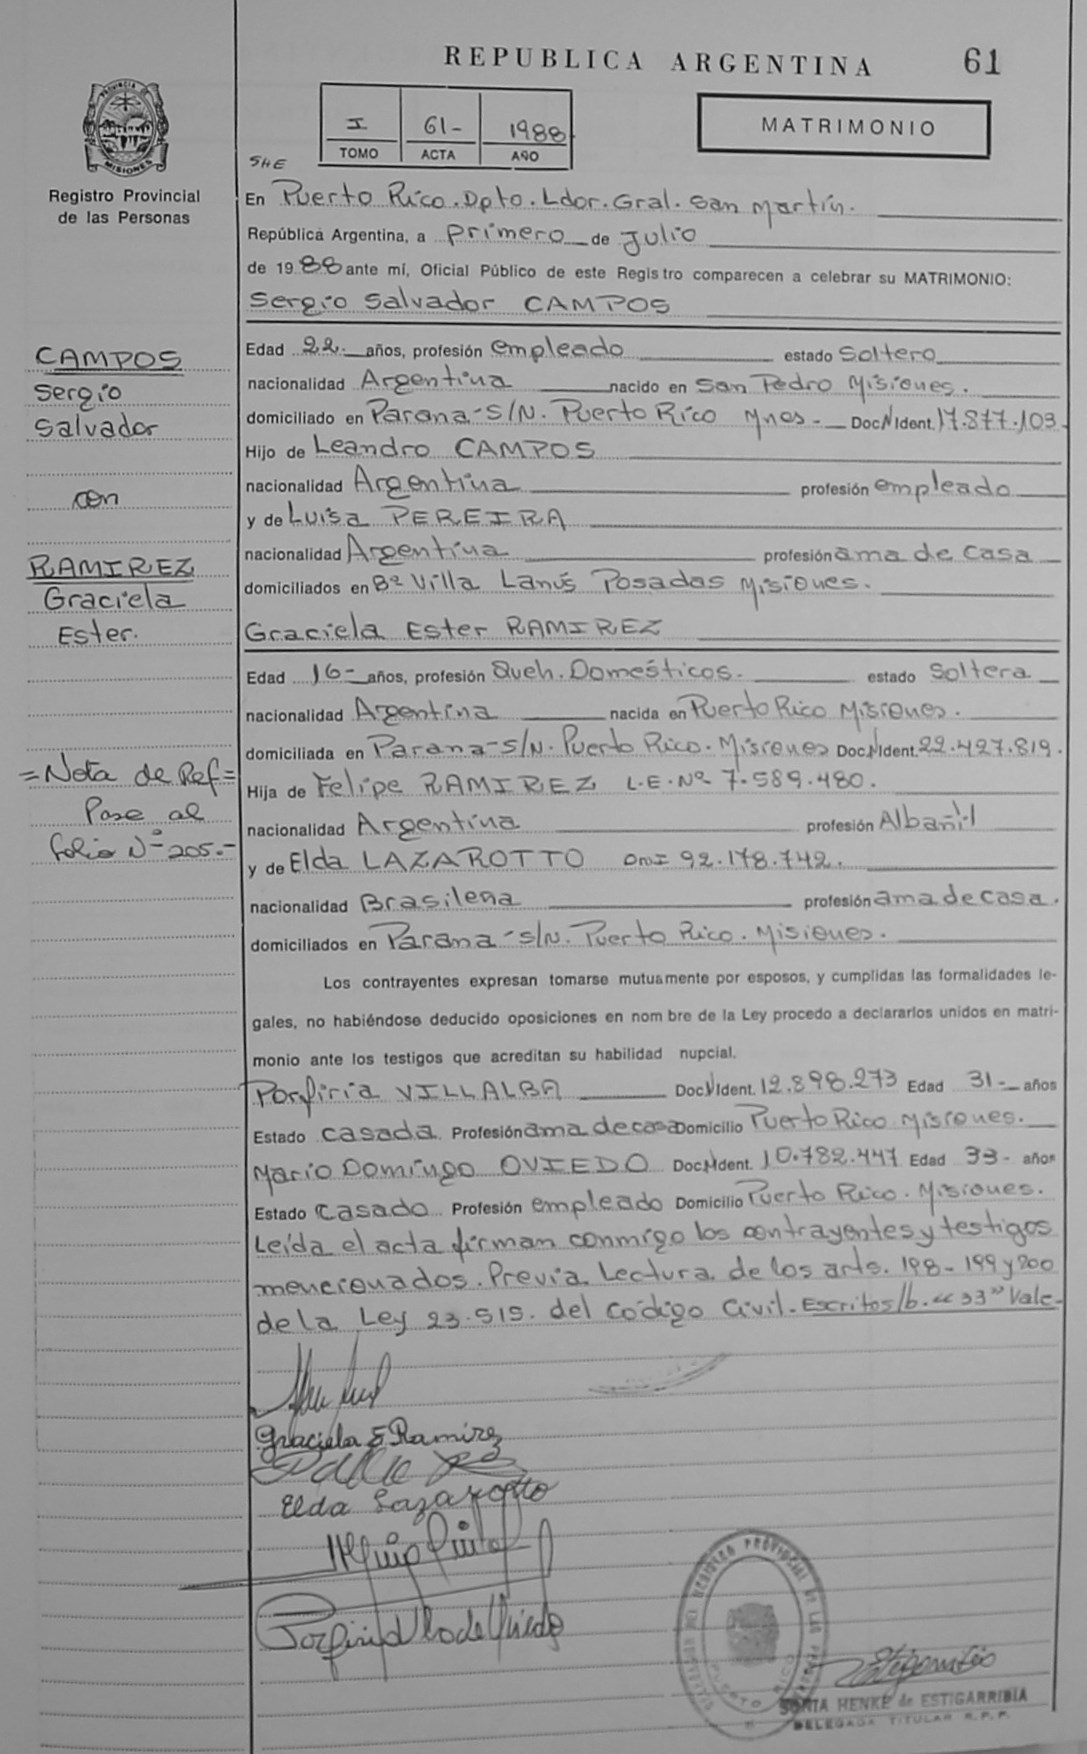 REPUBLICA ARGENTINA 61
I 61- 1988
TOMO ACTA AÑO
MATRIMONIO
PROVINCIA DE MISIONES
Registro Provincial
de las Personas
SHE
En Puerto Rico. Dpto. Ldor. Gral. San Martín.
República Argentina, a primero de Julio
de 1988 ante mí, Oficial Público de este Registro comparecen a celebrar su MATRIMONIO:
Sergio Salvador CAMPOS
Edad 22. años, profesión empleado estado Soltero
nacionalidad Argentina nacido en San Pedro Misiones.
domiciliado en Parana-S/N. Puerto Rico Mnes- Doc. N Ident. 17.877.103
Hijo de Leandro CAMPOS
nacionalidad Argentina profesión empleado
y de Luisa PEREIRA
nacionalidad Argentina profesión ama de casa
domiciliados en Bº Villa Lanús Posadas Misiones.
Graciela Ester RAMIREZ
Edad 16- años, profesión Queh. Domésticos. estado Soltera
nacionalidad Argentina nacida en Puerto Rico Misiones.
domiciliada en Parana-S/N. Puerto Rico. Misiones Doc. N Ident. 22.427.819.
Hija de Felipe RAMIREZ L.E. Nº 7.589.480.
nacionalidad Argentina profesión Albañil
y de Elda LAZAROTTO DNI 92.178.742.
nacionalidad Brasileña profesión ama de casa.
domiciliados en Parana-S/N. Puerto Rico. Misiones.
Los contrayentes expresan tomarse mutuamente por esposos, y cumplidas las formalidades le-
gales, no habiéndose deducido oposiciones en nom bre de la Ley procedo a declararlos unidos en matri-
monio ante los testigos que acreditan su habilidad nupcial.
Porfiria VILLALBA Doc. N Ident. 12.898.273 Edad 31- años
Estado casada Profesión ama de casa Domicilio Puerto Rico Misiones.
Mario Domingo OVIEDO Doc. N Ident. 10.782.447 Edad 33- años
Estado casado Profesión empleado Domicilio Puerto Rico. Misiones.
Leída el acta firman conmigo los contrayentes y testigos
mencionados. Previa Lectura de los arts. 198-199 y 200
de la Ley 23.515. del Código Civil. Escritos/b. "33" Vale-
CAMPOS
Sergio
Salvador
con
RAMIREZ
Graciela
Ester.
=Nota de Ref=
Pase al
folio Nº 205.-
Graciela E Ramirez
Elda Lazarotto
Porfiria V. de Oviedo
REGISTRO PROVINCIAL DE LAS PERSONAS
PUERTO RICO
SONIA HENKE de ESTIGARRIBIA
DELEGADA TITULAR R.P.P.